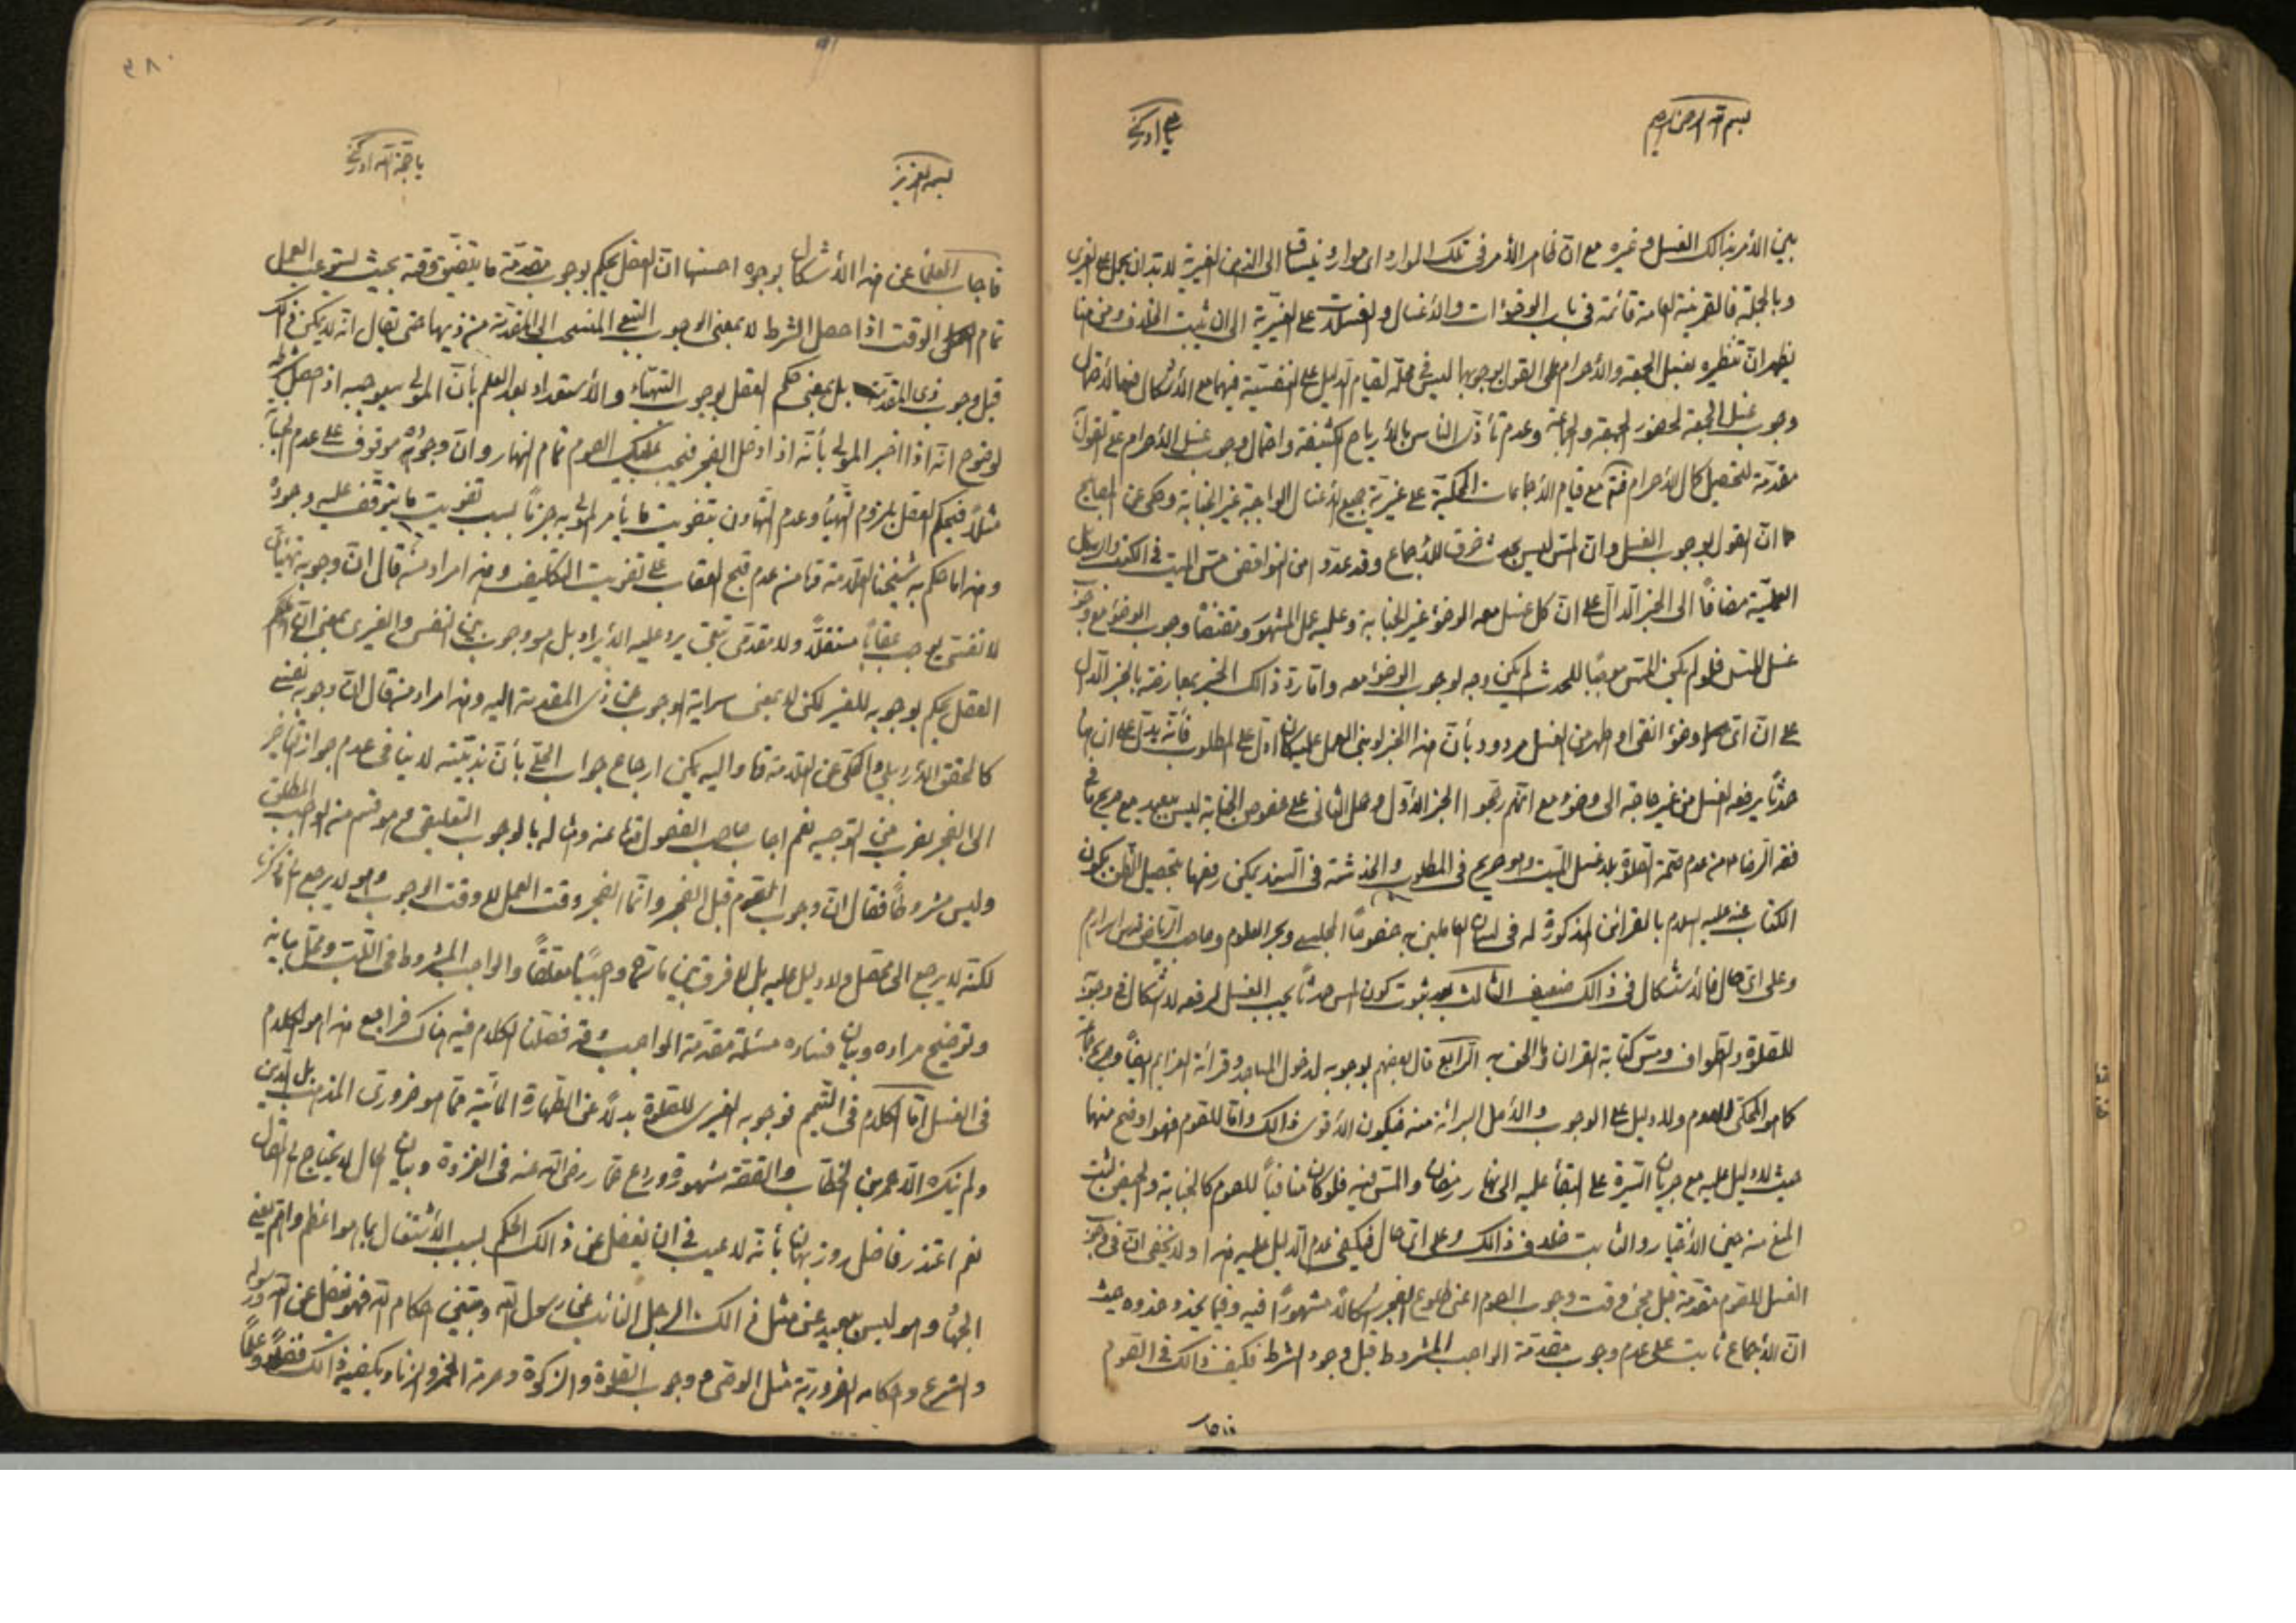 بسم الله الرحمن الرحيم
يا علي ادركني
بين الأمر بذالك الغسل وغيره مع ان ظاهر الأمر في تلك الموارد الى الذهن الغيرية لا بد ان يحمل على الغيري
وبالجملة فالقرينة العامة قائمة في باب الوضوءات والأغسال والغسلات على الغيرية الى ان يثبت الخلاف ومن هنا
يظهر ان تنظيره بغسل الجمعة والأحرام على القول بوجوبها ليس في محله لقيام الدليل على النفسية فيهما مع الأشكال فيهما لأحتمال
وجوب غسل الجمعة لحضور الجمعة والجماعة وعدم تأذى الناس بالأرياح الكثيفة واحتمال وجوب غسل الأحرام على القول
مقدمة لتحصيل كمال الأحرام فتم مع قيام الأجماعات المحكية على غيرية جميع الأغسال الواجبة غير الجنابة وحكى عن
ان القول بوجوب الغسل وان المس ليس بحدث خرق للأجماع وقد عدوا من النواقض مس الميت في الكتب والرسائل
العملية مضافا الى الخبر الدال على ان كل غسل معه الوضوء غير الجنابة وعليه عمل المشهور ومقتضاه وجوب الوضوء مع
غسل المس فلو لم يكن المس موجبا للحدث لم يكن وجه لوجوب الوضوء معه واما رد ذالك الخبر بمعارضة بالخبر الدال
على ان اى وضوء انقى او اطهر من الغسل مردود بأن هذا الخبر لو بنى العمل عليه كان ادل على المطلوب فأنه يدل على ان هنا
حدثا يرفعه الغسل من غير حاجة الى وضوء مع انهم رجحوا الخبر الأول وحمل الثانى على خصوص الجنابة ليس ببعيد مع صريح ما في
فقه الرضا من عدم صحة الصلوة بلا غسل الميت وهو صريح في المطلوب والخدشة في السند يمكن رفعها بتحصيل الظن بكون
الكتاب عنه عليه السلام بالقرائن المذكورة له في لسان العاملين به خصوصا المجلسي وبحر العلوم وصاحب الرياض قدس اسرارهم
وعلى اى حال فالأستشكال في ذالك ضعيف الثالث بعد ثبوت كون المس حدثا يجب الغسل لرفعه لا اشكال في وجوبه
للصلوة والطواف ومس كتابة القران الرابع قال بعضهم بوجوبه لدخول المساجد وقرائة العزايم ايضا
كما هو المحكى للصوم ولا دليل على الوجوب والأصل البرائة منه فيكون الأقوى ذالك واما للصوم فهو اوضح منهما
حيث لا دليل عليه مع جريان السيرة على البقاء عليه الى نهار رمضان والمس فيه فلو كان منافيا للصوم كالجنابة والحيض لثبت
المنع منه حين الأختيار والثابت خلاف ذالك وعلى اى حال فيكفي عدم الدليل عليه هذا ولا يخفى ان في وجوب
الغسل للصوم مقدمة قبل مجئ وقت وجوب الصوم اعنى طلوع الفجر اشكالا مشهورا فيه وفيما يحذو حذوه حيث
ان الأجماع ثابت على عدم وجوب مقدمة الواجب المشروط قبل وجود الشرط فكيف ذالك في الصوم
٣٨٠
بسمه العزيز
يا حجة الله ادركني
فاجاب العلماء عن هذا الأشكال بوجوه احسنها ان العقل يحكم بوجوب مقدمة ما يتضيق وقته بحيث يستوعب العمل
تمام الوقت اذا حصل الشرط لا بمعنى الوجوب التبعي المنسحب الى المقدمة من ذيها حتى يقال انه لا يمكن ذالك
قبل وجوب ذى المقدمة بل بمعنى حكم العقل بوجوب التهيأ والأستعداد بعد العلم بأن المولى سيوجبه اذا حصل شرطه
لوضوح انه اذا اخبر المولى بأنه اذا دخل الفجر فيجب عليك الصوم تمام النهار وان وجوبه موقوف على عدم الجنابة
مثلا فيحكم العقل بلزوم التهيأ وعدم التهاون بتفويت ما يأمر المولى به جزما بسبب تفويت ما يتوقف عليه وجوده
وهذا ما حكم به شيخنا العلامة من عدم قبح العقاب على تفويت التكليف وهذا مراد من قال ان وجوبه تهيأى
لا نفسى يوجب عقابا مستقلا ولا مقدمى تبعى يرد عليه الأيراد بل هو وجوب بين النفسى والغيرى بمعنى ان
العقل يحكم بوجوبه للغير لكن لا بمعنى سراية الوجوب من ذى المقدمة اليه وهذا مراد من قال ان وجوبه نفسى
كالمحقق الأردبيلي والمحكى عن العلامة واليه يمكن ارجاع جواب الحلى بأن ندبيته لا ينافى عدم جواز تأخيره
الى الفجر بضرب من التوجيه نعم اجاب صاحب الفصول عنه وامثاله بالوجوب التعليقى وهو قسم من الواجب المطلق
وليس مشروطا فقال ان وجوب الصوم قبل الفجر وانما الفجر وقت العمل لا وقت الوجوب
لكنه لا يرجع الى محصل ولا دليل عليه بل لا فرق بين ما سماه واجبا معلقا والواجب المشروط في اللب ومحل بيانه
وتوضيح مراده وبيان فساده مسئلة مقدمة الواجب وقد فصلنا الكلام فيه هناك فراجع هذا هو الكلام
في الغسل اما الكلام في التيمم فوجوبه الغيرى للصلوة بدلا عن الطهارة المائية مما هو ضرورى المذهب بل الدين
ولم ينكره الا عمر بن الخطاب والقصة مشهورة وردع عمار رضى الله عنه في الغزوة وبيان الحال لا يحتاج الى المقال
نعم اعتذر فاضل روزبهان بأنه لا عيب في ان يغفل عن ذالك الحكم بسبب الأشتغال بما هو اعظم واهم يعنى
الجهاد وهو ليس ببعيد عن مثل ذالك الرجل النائب عن رسول الله ومبين احكام الله فهو غفل عن الله ورسوله
والشرع واحكامه الضرورية مثل الوضوء وجوب الصلوة والزكوة وحرمة الخمر والزنا ويكفيه ذالك فضلا وعلما